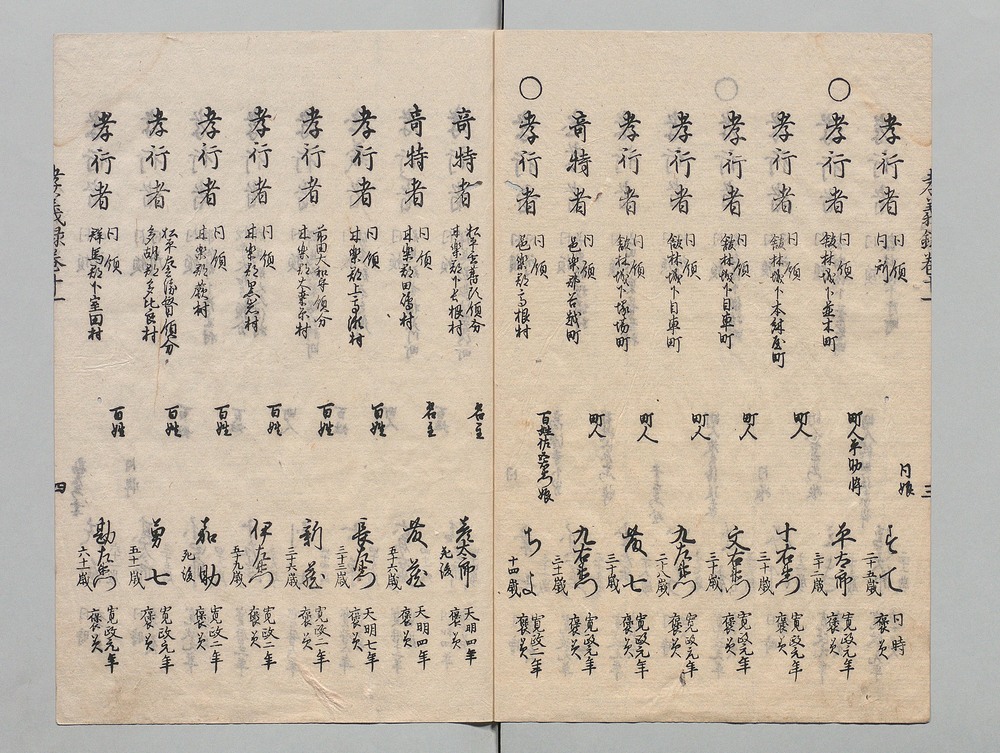 孝義録巻十一
三
孝行者 同領 同所 同娘 すて 二十五歳 同時 褒美
○孝行者 同領 館林城下並木町 町人平助忰 平太郎 三十一歳 寛政元年 褒美
孝行者 同領 館林城下本紺屋町 町人 十右衛門 三十歳 寛政元年 褒美
孝行者 同領 館林城下目車町 町人 文右衛門 三十歳 寛政元年 褒美
孝行者 同領 館林城下目車町 町人 九左衛門 二十八歳 寛政元年 褒美
孝行者 同領 館林城下塚場町 町人 七 三十一歳 寛政元年 褒美
奇特者 同領 邑楽郡谷越町 町人 九右衛門 三十歳 寛政元年 褒美
○孝行者 同領 邑楽郡高根村 百姓佐右衛門娘 ちよ 十四歳 寛政二年 褒美
奇特者 領分 甘楽郡下仁田村 名主 太郎 死後 天明四年 褒美
奇特者 同領 甘楽郡田篠村 名主 蔵 五十六歳 天明四年 褒美
孝行者 同領 甘楽郡上高瀬村 百姓 長左衛門 三十三歳 天明七年 褒美
孝行者 前田大和守領分 甘楽郡大桑原村 百姓 新蔵 三十六歳 寛政二年 褒美
孝行者 同領 甘楽郡黒岩村 百姓 伊左衛門 五十九歳 寛政二年 褒美
孝行者 同領 甘楽郡蕨村 百姓 和助 死後 寛政二年 褒美
孝行者 松平 領分 多胡郡多比良村 百姓 勇七 五十一歳 寛政元年 褒美
孝行者 同領 群馬郡下室田村 百姓 勘左衛門 六十歳 寛政元年 褒美
孝義録巻十一
四